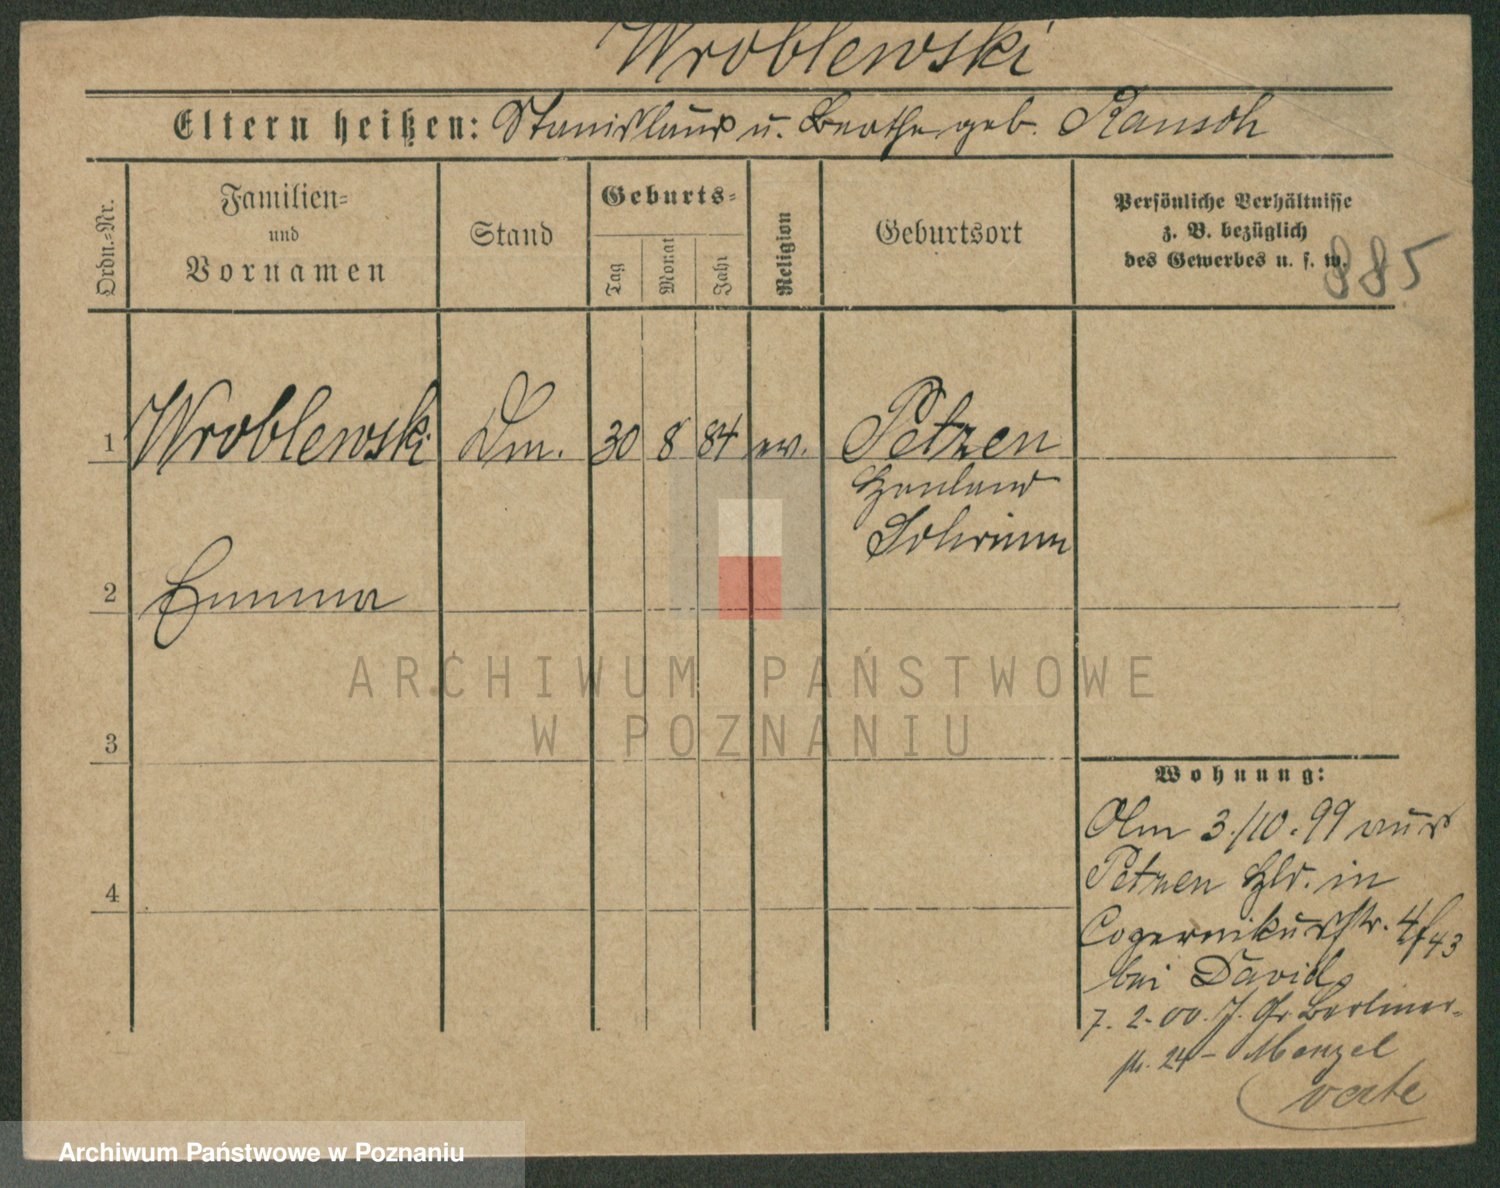 Wroblewski
Eltern heißen: Stanislaus u. Berthe geb. Rausch
Ordn.-Nr.
Familien-
und
Vornamen
Stand
Geburts-
Tag
Monat
Jahr
Religion
Geburtsort
Persönliche Verhältnisse
z. B. bezüglich
des Gewerbes u. s. w.
885
1 Wroblewski Dm. 30 8 84 ev. Petzen
Hauland
Schrimm
2 Emma
3
4
Wohnung:
Am 3./10. 99 aus
Petzen Hld. in
Copernikusstr. 4
bei David
7. 2. 00. J. Gr. Berliner-
str. 24 - Menzel
verte
ARCHIWUM PAŃSTWOWE
W POZNANIU
Archiwum Państwowe w Poznaniu